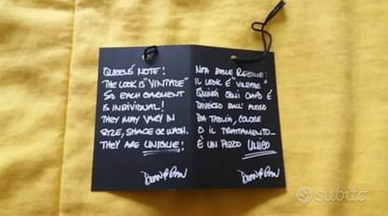 QUEENS' NOTE!
THE LOOK IS "VINTAGE"
SO EACH GARMENT
IS INDIVIDUAL!
THEY MAY VARY IN
SIZE, SHADE OR WASH.
THEY ARE UNIQUE!
NOTA DALLE REGINE!
IL LOOK É "VINTAGE"
QUINDI OGNI CAPO É
DIVERSO DALL'ALTRO
DA TAGLIA, COLORE
O IL TRATTAMENTO...
É UN PEZZO UNICO
subito